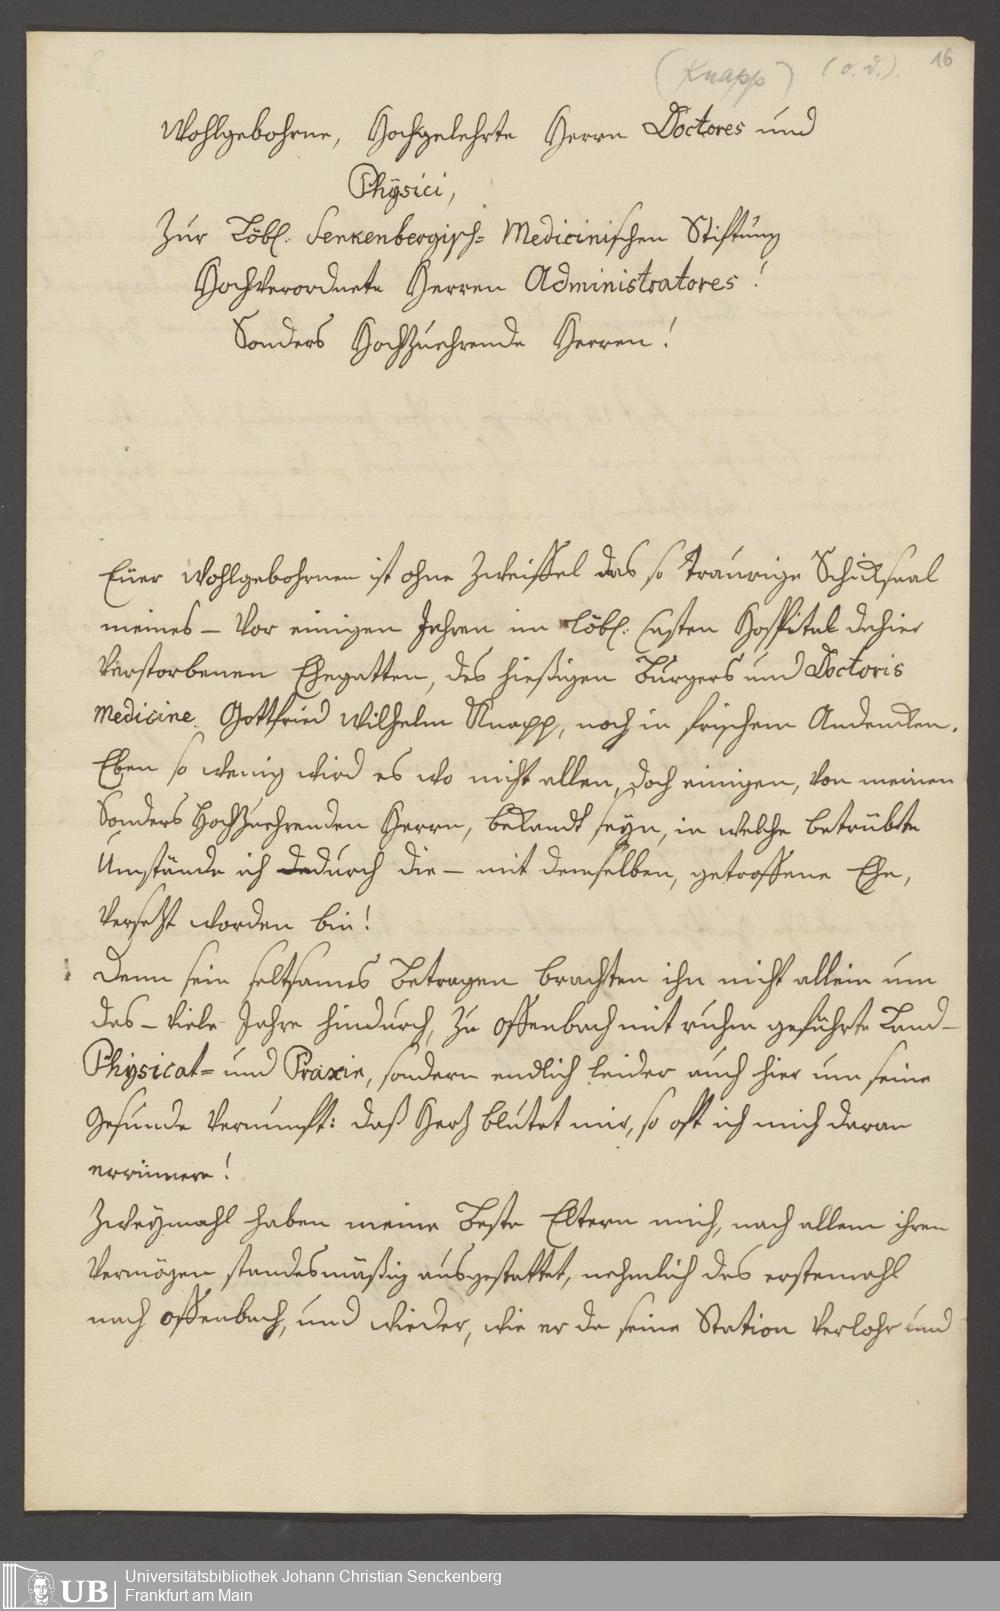 (Knapp) (o. d.). 16
Wohlgebohrne, Hochgelehrte Herrn Doctores und
Physici,
Zur Löbl. Senkenbergisch= Medicinischen Stiftung
Hochverordnete Herren Administratores!
Sonders Hochzuehrende Herren!
Eüer Wohlgebohrnen ist ohne Zweiffel das so traurige Schicksaal
meines – vor einigen Jahren im Löbl: Casten Hospital dahier
verstorbenen Ehegatten, des hießigen Burgers und Doctoris
Medicine. Gottfried Wilhelm Knapp, noch in frischem Andencken.
Eben so wenig wird es wo nicht allen, doch einigen, von meinen
Sonders Hochzuehrenden Herrn, bekandt seyn, in welche betrübte
Umstände ich dadurch die – mit demselben, getroffene Ehe,
versezt worden bin!
Denn sein seltsames Betragen brachten ihn nicht allein um
das – viele Jahre hindurch, zu Offenbach mit ruhm geführte Land–
Physicat= und Praxin, sondern endlich leider auch hier um seine
gesunde Vernunft: daß Herz blutet mir, so oft ich mich daran
errinnere!
Zweymahl haben meine beste Eltern mich, nach allem ihren
Vermögen standesmäßig ausgestattet, nehmlich das erstemahl
nach Offenbach, und wieder, wie er da seine Station verlohr und
UB
Universitätsbibliothek Johann Christian Senckenberg
Frankfurt am Main